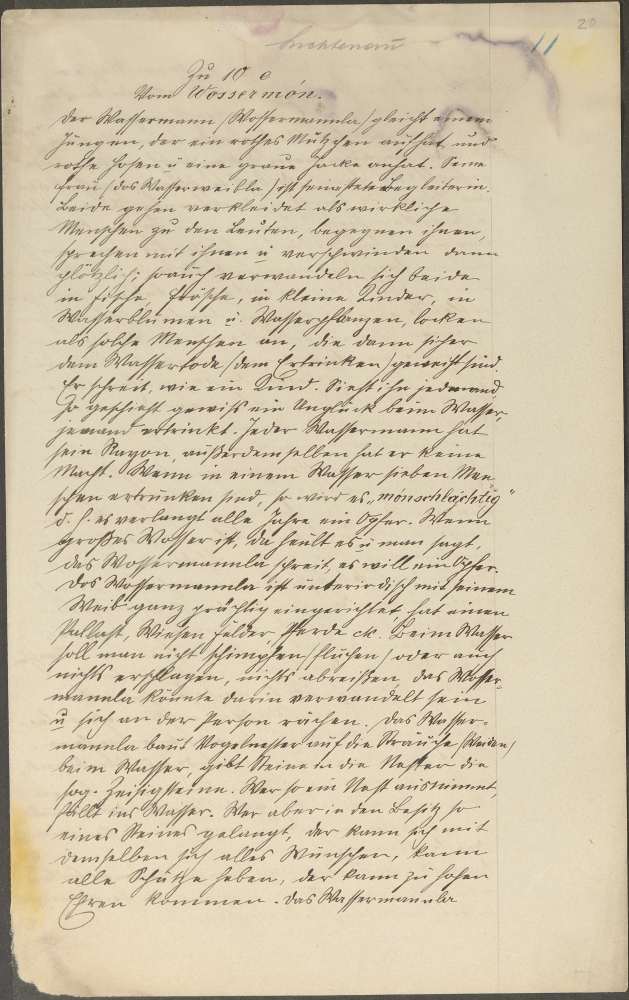 20
11
Zu 10 e
Vom Wossermón.
Der Wassermann /Wossermannla/ gleicht einem
Jungen, der ein rothes Mützchen aufhat und
rothe Hosen u eine graue Jacke anhat. Seine
Frau /das Wasserweibla/ ist seine stete Begleiterin.
Beide gehen verkleidet als wirkliche
Menschen zu den Leuten, begegnen ihnen,
sprechen mit ihnen u verschwinden dann
plötzlich; so auch verwandeln sich beide
in Fische, Frösche, in kleine Kinder, in
Wasserblumen u. Wasserpflanzen, locken
als solche Menschen an, die dann sicher
dem Wassertode /dem Ertrinken/ geweiht sind.
Er schreit, wie ein Kind. Sieht ihn jedmand
so geschieht gewiss ein Unglück beim Wasser,
jemand ertrinkt. Jeder Wassermann hat
sein Rayon, außer demselben hat er keine
Macht. Wenn in einem Wasser sieben Men-
schen ertrunken sind, so wird es „monschlächtig"
d. h. es verlangt alle Jahre ein Opfer. Wenn
großes Wasser ist, da heult es u man sagt,
das Wossermannla schreit, es will ein Opfer.
Dos Wossermannla ist unterirdisch mit seinem
Weib ganz prächtig eingerichtet, hat einen
Pallast, Wiesen, Felder, Pferde etc. Beim Wasser
soll man nicht schimpfen /fluchen/ oder auch
nichts erschlagen, nichts abreißen, das Wosser-
mannla könnte darin verwandelt sein
u sich an der Person rächen. Das Wasser-
mannla baut Vogelnester auf die Sträuche /Weiden/
beim Wasser, gibt Steine in die Nester die
sog. Zeisigsteine. Wer so ein Nest ausnimmt,
fällt ins Wasser. Wer aber in den Besitz so
eines Steines gelangt, der kann sich mit
demselben sich alles wünschen, kann
alle Schätze heben, der kann zu hohen
Ehren kommen. Das Wassermannla